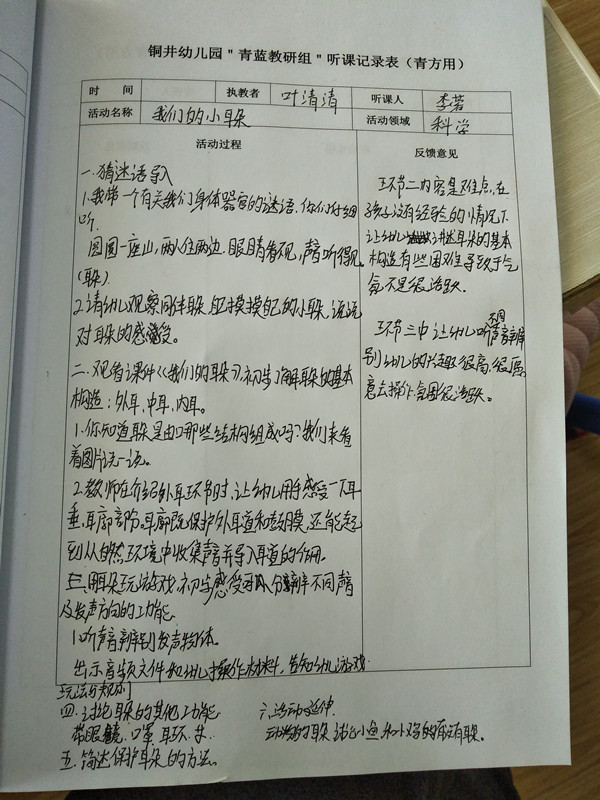 铜井幼儿园"青蓝教研组"听课记录表（青方用）
时 间 执教者 叶清清 听课人 李若
活动名称 我们的小耳朵 活动领域 科学
活动过程
一.猜谜语导入
1.我带一个有关我们身体器官的谜语.你们仔细
听.
圆圆一座山,两人住两边.眼睛看不见,声音听得见.
(耳朵)
2.请幼儿观察同伴耳朵.且摸摸自己的小耳朵,说说
对耳朵的感受。
二.观看课件《我们的耳朵》,初步了解耳朵的基本
构造:外耳、中耳、内耳。
1.你知道耳朵是由哪些结构组成吗?我们来看
着图片说一说。
2.教师在介绍外耳环节时,让幼儿用手感受一下耳
垂、耳廓部分。耳廓既保护外耳道和鼓膜,还能起
到从自然环境中收集声音并导入耳道的作用.
三.用耳朵玩游戏,初步感受耳朵分辨不同声音
及发声方向的功能.
1.听声音辨别发声物体.
出示音频文件和幼儿操作材料,告知幼儿游戏
玩法与规则
四.讨论耳朵的其他功能
带眼镜.口罩.耳环.
五.简述保护耳朵的方法。
六.活动延伸.
动物的耳朵.讨论小鱼和小鸡的有没有耳朵.
反馈意见
环节二内容是难点,在
孩子没有经验的情况下
让幼儿讲述耳朵的基本
构造有些困难导致于气
氛不是很活跃.
环节三中让幼儿听不同声音辨
别幼儿的兴趣很高,很愿
意去操作,氛围很活跃.